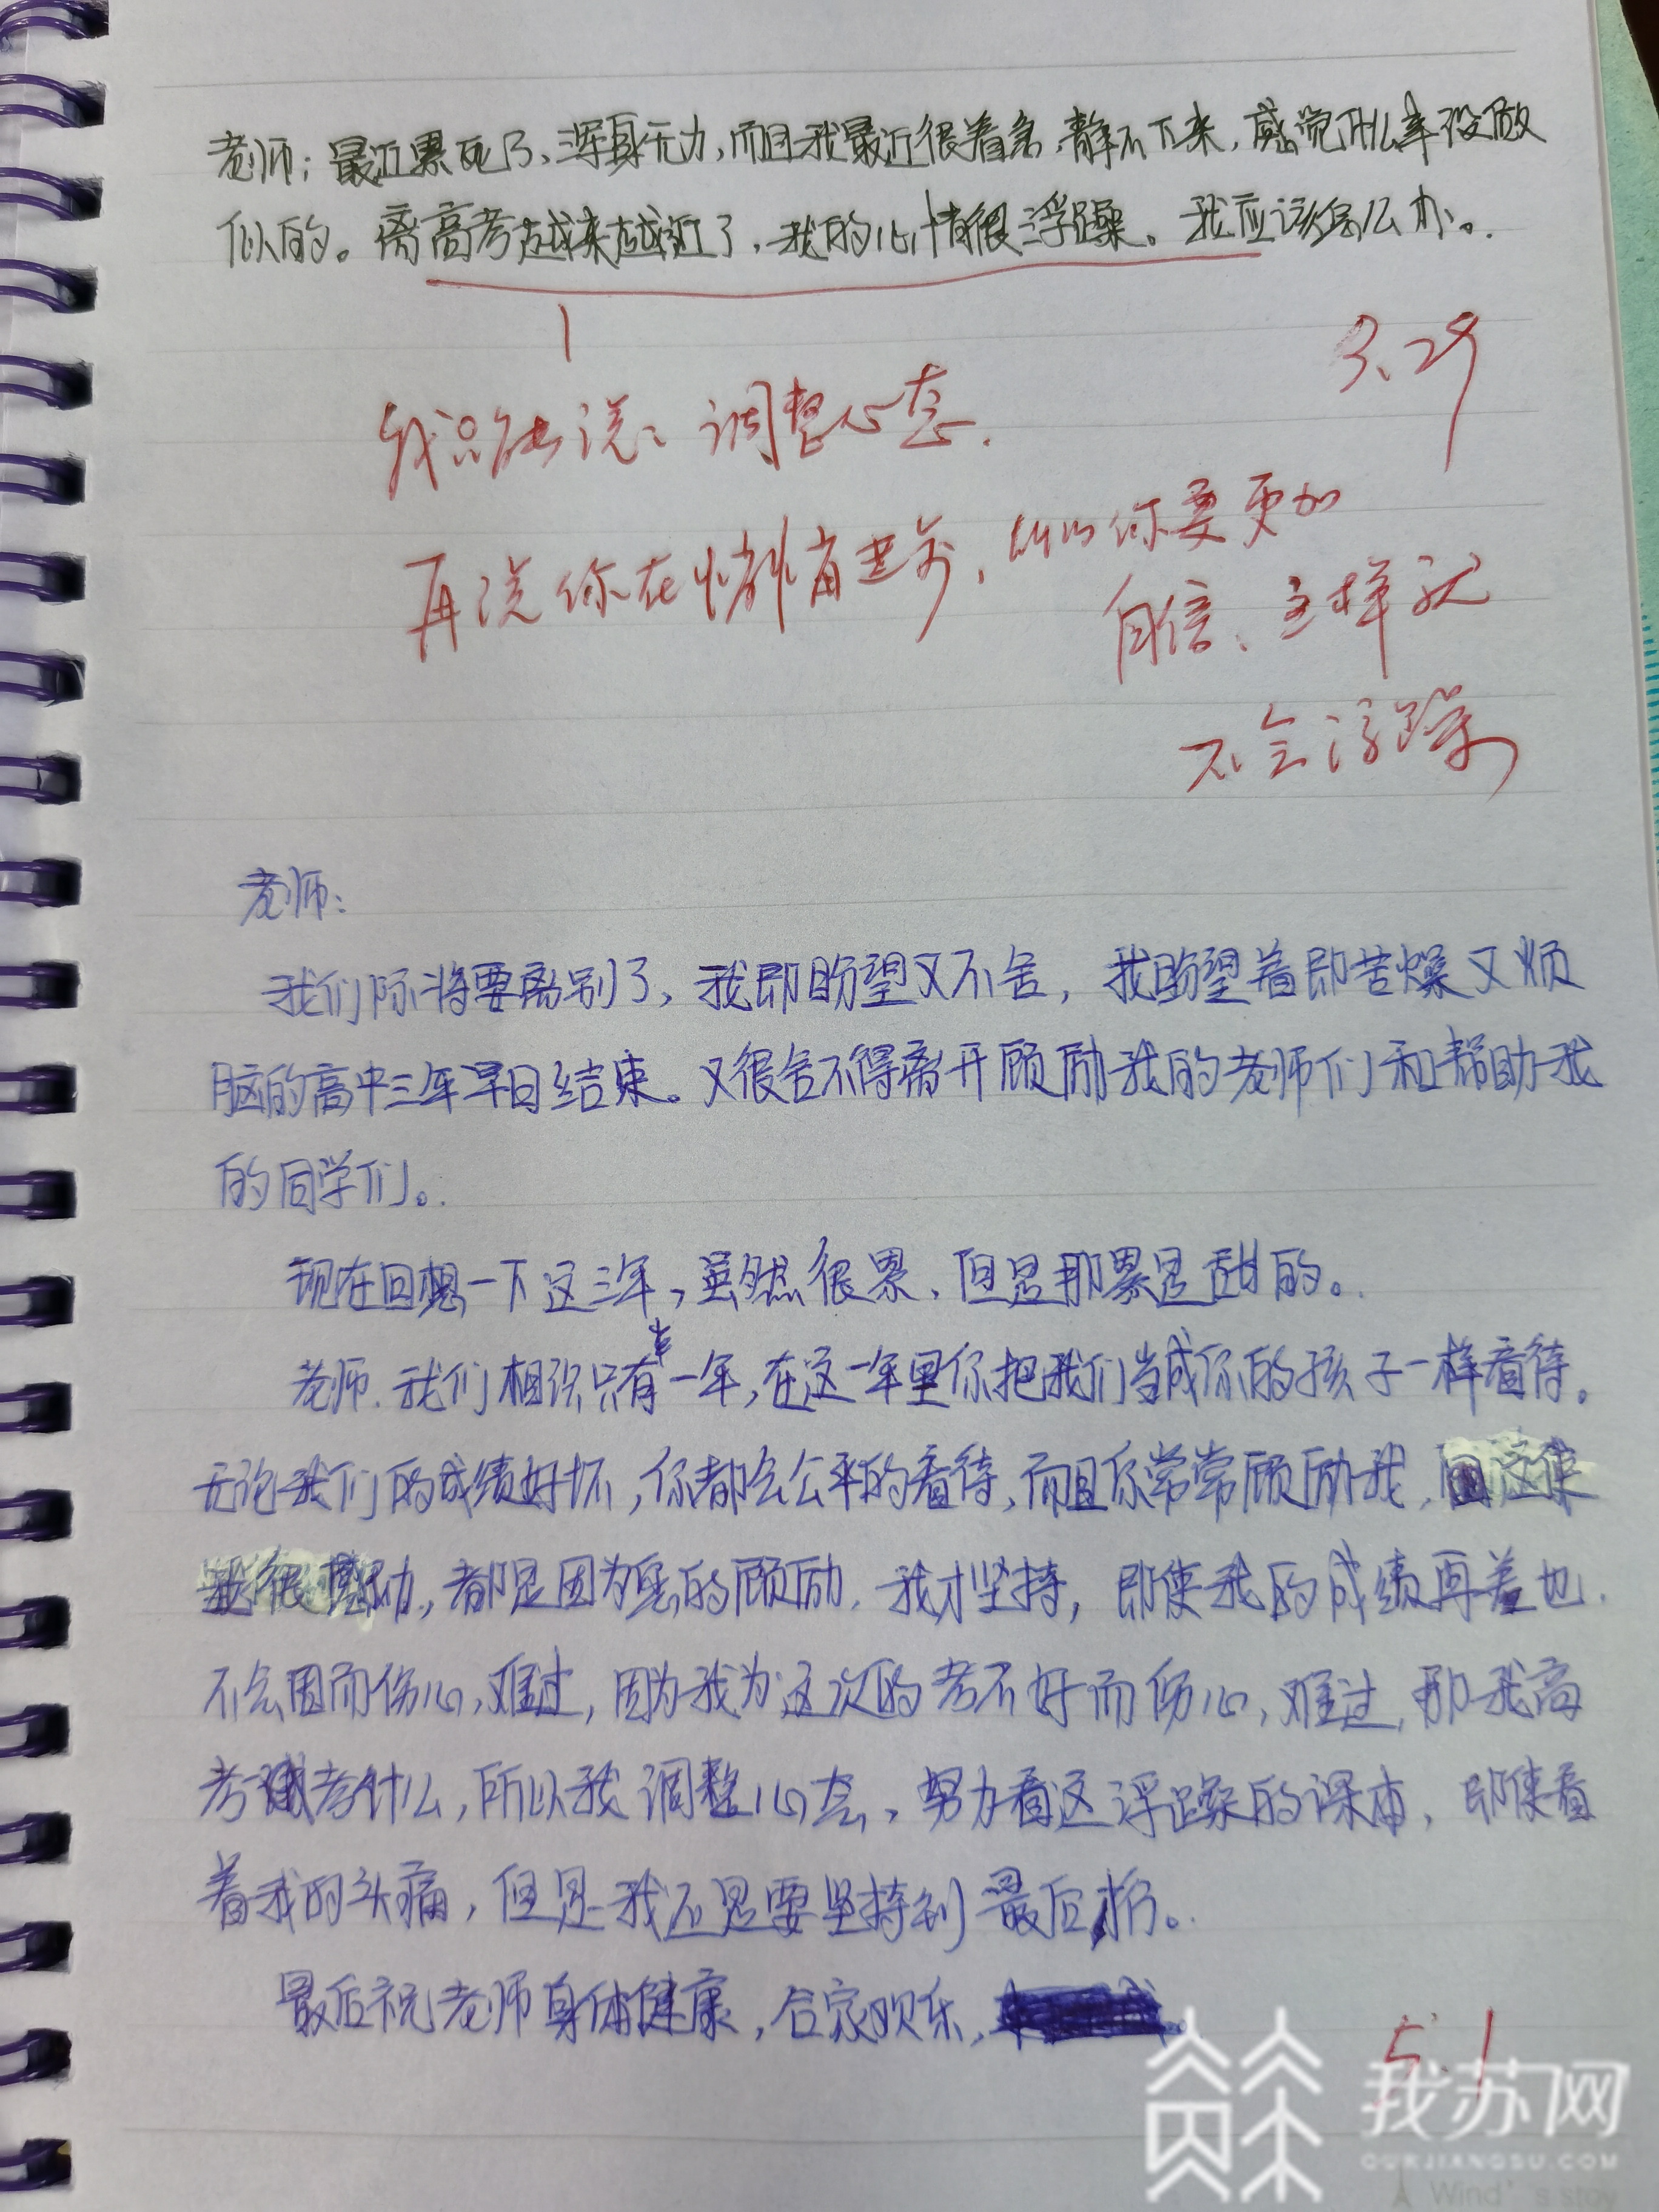 老师：最近累死了、浑身无力，而且我最近很着急，静不下来，感觉什么事没做
似的。离高考越来越近了，我的心情很浮躁。我应该怎么办。
3.29
我只能说：调整心态.
再说你在悄悄有进步，所以你要更加
自信、这样就
不会浮躁
老师：
我们际将要离别了，我即盼望又不舍，我盼望着即苦燥又烦
脑的高中三年早日结束。又很舍不得离开顾励我的老师们和帮助我
的同学们。
现在回想一下这三年，虽然很累、但是那累是甜的。
老师、我们相识只有一年，在这一年里你把我们当成你的孩子一样看待。
无论我们的成绩好坏，你都会公平的看待，而且你常常顾励我，这使
我很感动，都是因为您的顾励，我才坚持，即使我的成绩再差也
不会因而伤心，难过，因为我为这次的考不好而伤心，难过，那我高
考考什么，所以我调整心态，努力看这浮躁的课本，即使看
着我的头痛，但是我还是要坚持到最后。
最后祝老师身体健康，合家欢乐，
5.1
我苏网
OURJIANGSU.COM
Wind's stay